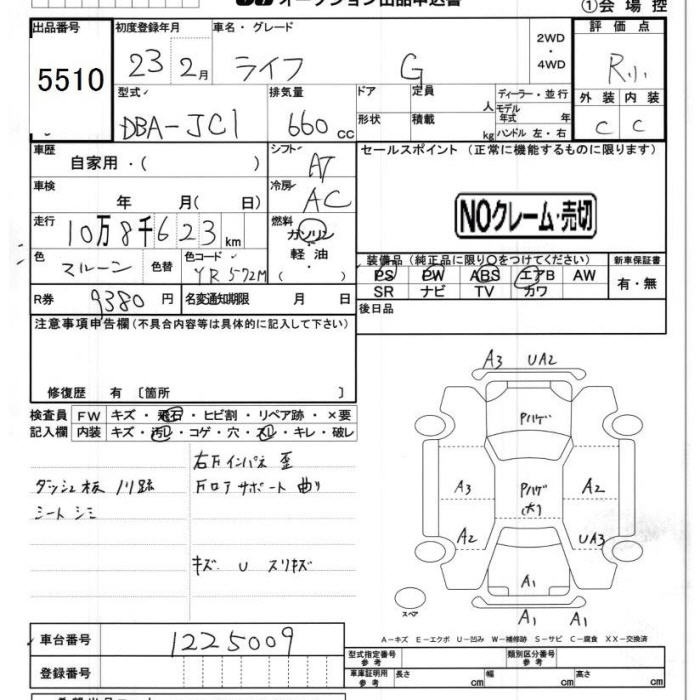 オークション出品申込書
①会場控
出品番号 初度登録年月 車名・グレード 2WD・4WD 評価点
5510 23 2月 ライフ G R小
型式 排気量 ドア 定員 人 ディーラー・並行 外装 内装
DBA-JC1 660cc 形状 積載 kg モデル年式 年 ハンドル 左・右 C C
車歴 シフト セールスポイント(正常に機能するものに限ります)
自家用・( ) AT
車検 冷房
年 月( 日) AC
走行 燃料 NOクレーム・売切
10万8千623km ガソリン・軽油・( )
色 色替 色コード 装備品(純正品に限り○をつけてください) 新車保証書
マルーン YR572M PS PW ABS エアB AW 有・無
SR ナビ TV カワ
R券 9380円 名変通知期限 月 日 後日品
注意事項申告欄(不具合内容等は具体的に記入して下さい)
修復歴 有〔箇所 〕
検査員 FW キズ・飛石・ヒビ割・リペア跡・×要
記入欄 内装 キズ・汚レ・コゲ・穴・スレ・キレ・破レ
右Fインパネ 歪
ダッシュ板 ノリ跡 Fロアサポート 曲り
シート シミ
キズ U スリキズ
A3 UA2
Pハゲ
A3 Pハゲ(大) A2
A2 UA3
A1
スペア A1 A1
A-キズ E-エクボ U-凹み W-補修跡 S-サビ C-腐食 XX-交換済
車台番号 1225009
型式指定番号 参考 類別区分番号 参考
登録番号 車庫証明用 参考 長さ cm 幅 cm 高さ cm